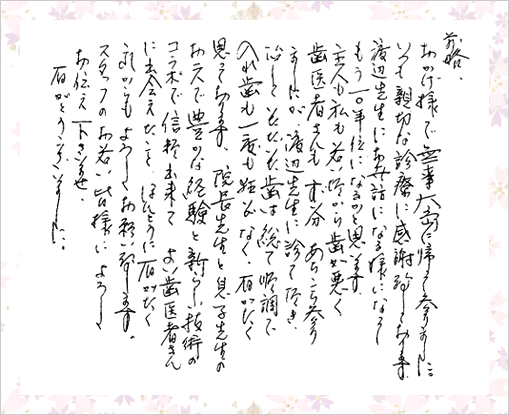 前略、
おかげ様で無事大島に帰って参りました。
いつも親切な診療に感謝致しております。
渡辺先生にお世話になる様になって
もう一〇年位になるかと思います。
主人も私も若い時から歯が悪く
歯医者さんも ずい分 あちこち参り
ましたが、渡辺先生に診て頂き、
治して いただいた歯は総て順調で
入れ歯も一度も 痛みなく、有がたく
思っております。院長先生と息子先生の
お二人で 豊かな経験と新らしい技術の
コラボで 信頼出来て よい歯医者さん
に出会えたことを ほんとうに有がたく
これからも よろしくお願い致します。
スタッフのお若い皆様に よろしく
お伝え下さいませ、
有がとうございました。